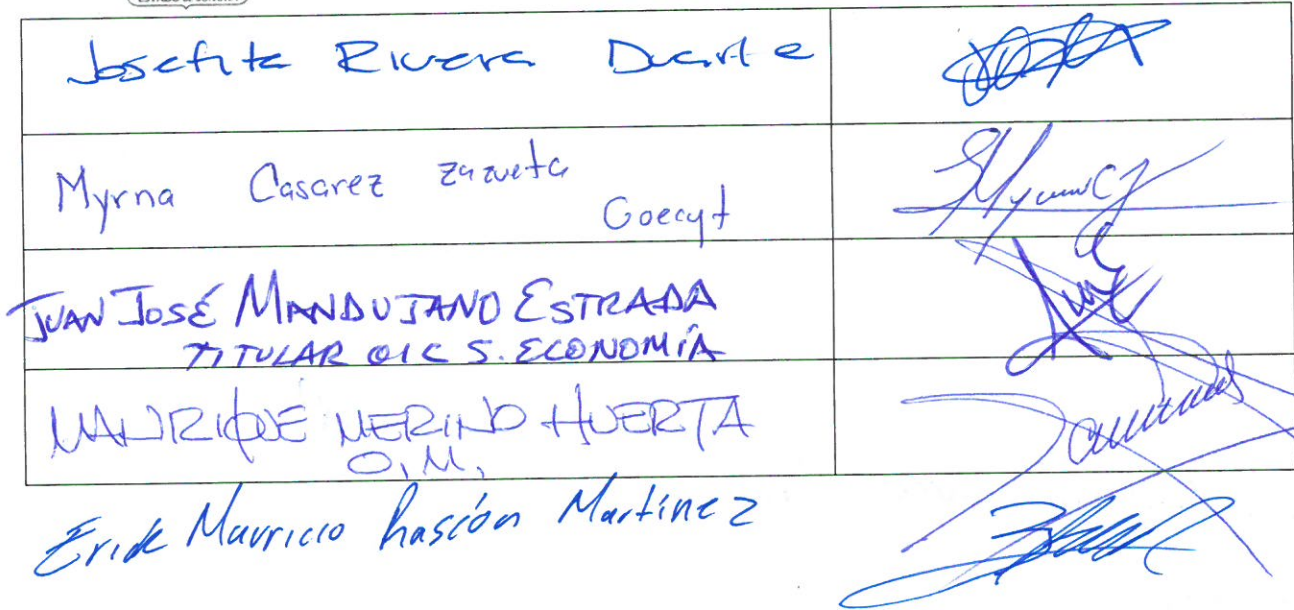 Josefita Rivera Duarte
Myrna Casarez Zazueta
Coecyt
JUAN JOSÉ MANDUJANO ESTRADA
TITULAR OIC S. ECONOMÍA
MANRIQUE MERINO HUERTA
O.M.
Erick Mauricio Rascón Martínez